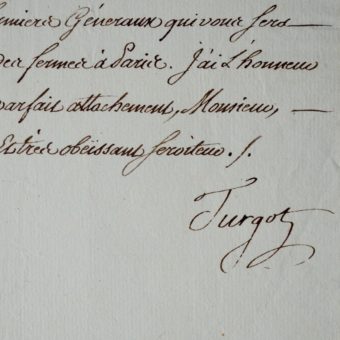 Fermiers Généraux qui vous fera —
des fermes à Paris. J'ai L'honneur
parfait attachement, Monsieur, —
Et très obéissant Serviteur ./.
Turgot